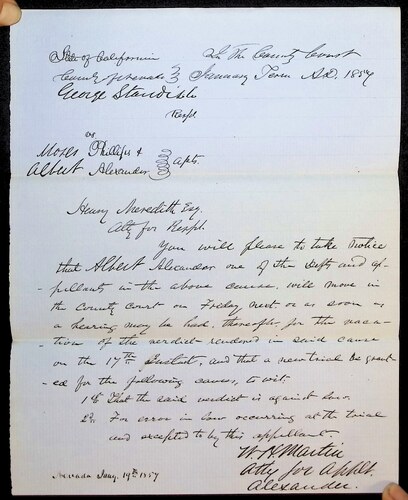 State of California In The County Court
County of Nevada January Term A.D. 1857
George Standish
Respt.
vs
Moses Phillips &
Albert Alexander Apts.
Henry Meredith Esq.
Atty for Respt.
You will please to take Notice
that Albert Alexander one of the Defts and ap-
-pellants in the above cause, will move in
the County Court on Friday next or as soon as
a hearing may be had, therefor, for the vaca-
-tion of the verdict rendered in said cause
on the 17th Instant, and that a new trial be grant-
-ed for the following causes, to wit:
1st That the said verdict is against law
2d. For error in law occurring at the trial
and excepted to by this appellant.
W H Martin
Atty for Applt
Alexander.
Nevada Jany. 19th 1857